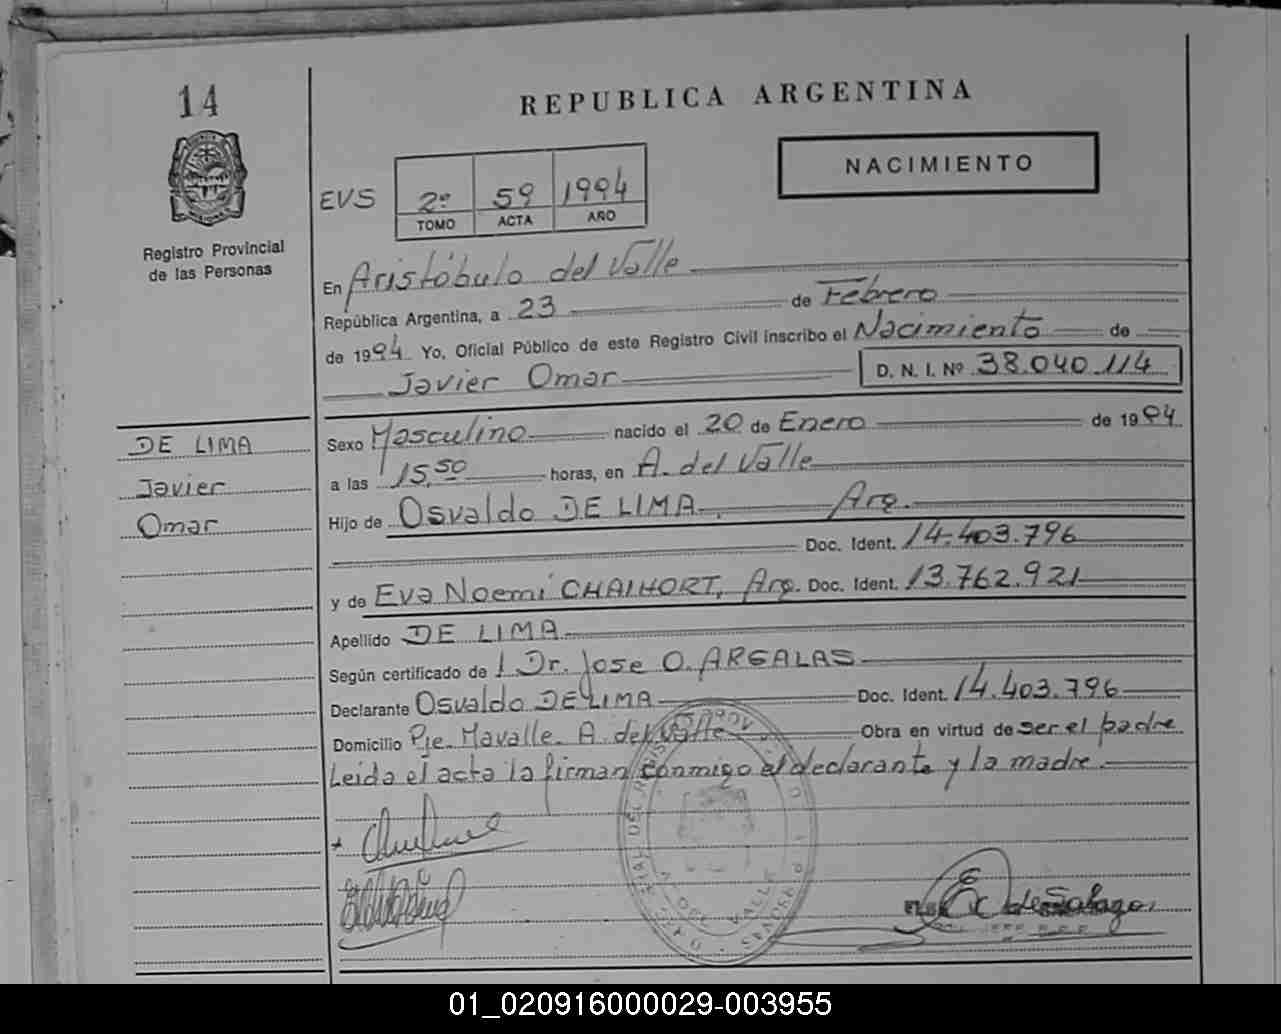 14
REPUBLICA ARGENTINA
NACIMIENTO
EVS 2º 59 1994
TOMO ACTA AÑO
Registro Provincial
de las Personas
En Aristóbulo del Valle
República Argentina, a 23 de Febrero
de 1994 Yo, Oficial Público de este Registro Civil inscribo el Nacimiento de
Javier Omar D. N. I. Nº 38.040.114
DE LIMA
Javier
Omar
Sexo Masculino nacido el 20 de Enero de 1994
a las 15,50 horas, en A. del Valle
Hijo de Osvaldo DE LIMA, Arg.
Doc. Ident. 14.403.796
y de Eva Noemí CHAIHORT, Arg. Doc. Ident. 13.762.921
Apellido DE LIMA
Según certificado de Dr. Jose O. ARGALAS
Declarante Osvaldo DE LIMA Doc. Ident. 14.403.796
Domicilio Pje. Mavalle. A. del Valle Obra en virtud de ser el padre
Leida el acta la firman conmigo el declarante y la madre.
VALLE
01_020916000029-003955